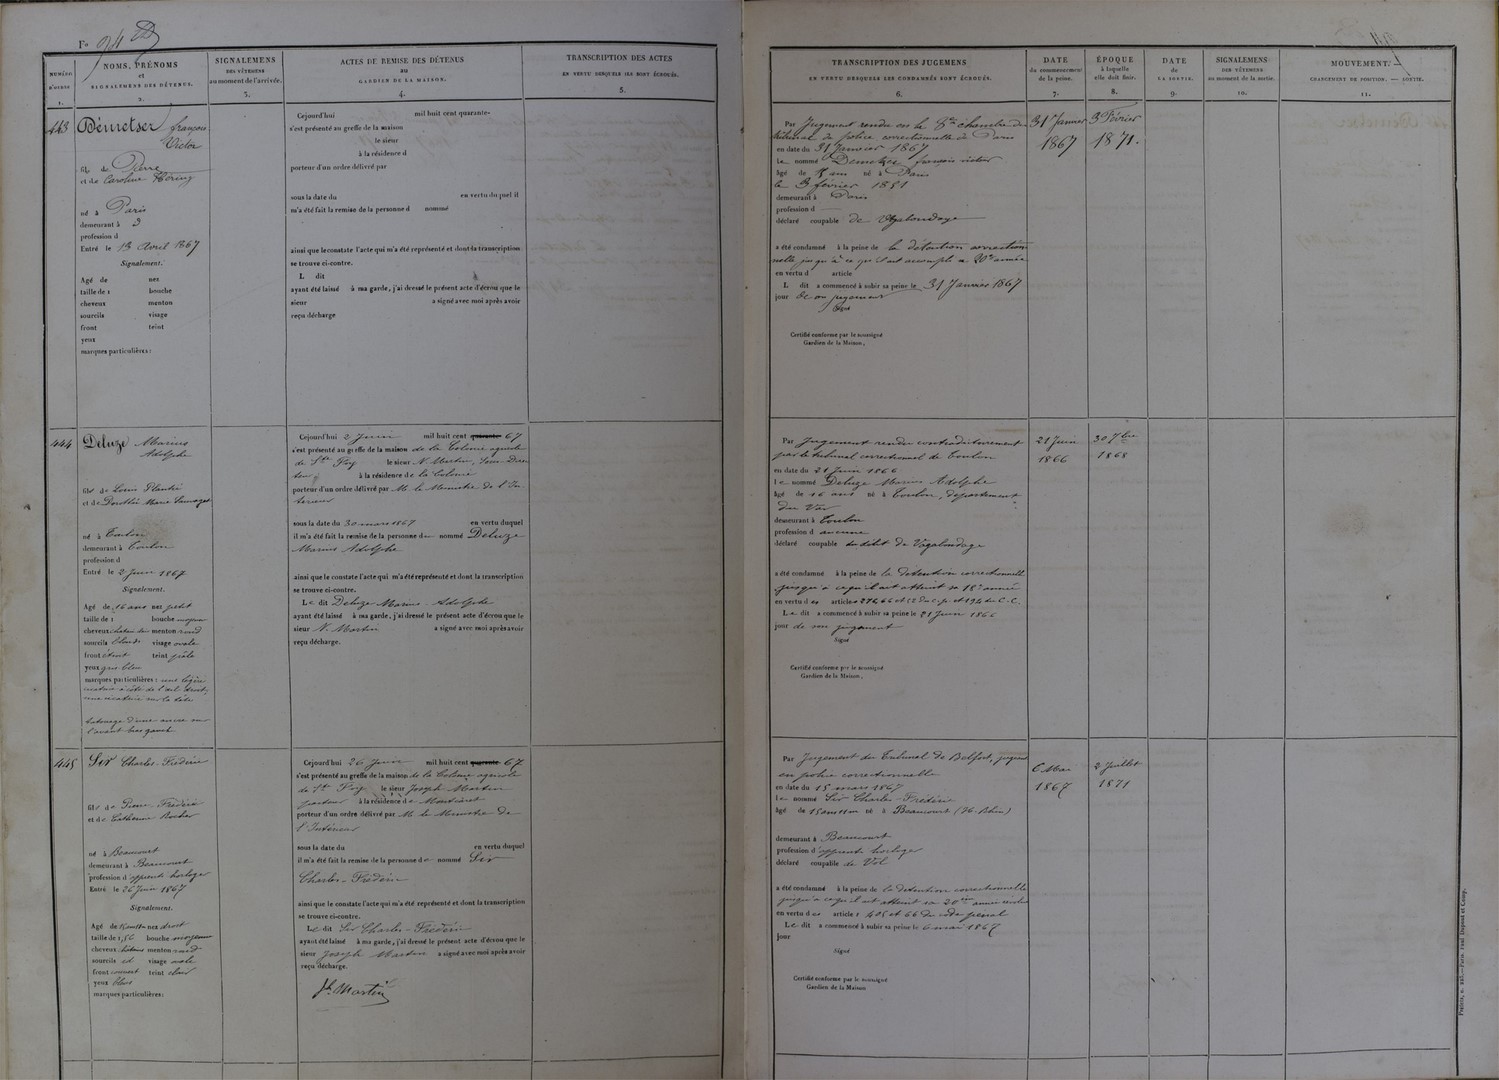 Fo 94
NUMÉRO D'ORDRE 1.
NOMS, PRÉNOMS et SIGNALEMENS DES DÉTENUS. 2.
SIGNALEMENS DES VÊTEMENS au moment de l'arrivée. 3.
ACTES DE REMISE DES DÉTENUS au GARDIEN DE LA MAISON. 4.
TRANSCRIPTION DES ACTES EN VERTU DESQUELS ILS SONT ÉCROUÉS. 5.
TRANSCRIPTION DES JUGEMENS EN VERTU DESQUELS LES CONDAMNÉS SONT ÉCROUÉS. 6.
DATE du commencement de la peine. 7.
ÉPOQUE à laquelle elle doit finir. 8.
DATE de LA SORTIE. 9.
SIGNALEMENS DES VÊTEMENS au moment de la sortie. 10.
MOUVEMENT. — CHANGEMENT DE POSITION. — SORTIE. 11.
443
Démetser françois
Victor
fils de Pierre
et de Caroline
né à Paris
demeurant à
profession d
Entré le 13 Avril 1867
Signalement.
Agé de nez
taille de 1 bouche
cheveux menton
sourcils visage
front teint
yeux
marques particulières :
Cejourd'hui mil huit cent quarante-
s'est présenté au greffe de la maison
le sieur
à la résidence d
porteur d'un ordre délivré par
sous la date du en vertu duquel il
m'a été fait la remise de la personne d nommé
ainsi que le constate l'acte qui m'a été représenté et dont la transcription
se trouve ci-contre.
L dit
ayant été laissé à ma garde, j'ai dressé le présent acte d'écrou que le
sieur a signé avec moi après avoir
reçu décharge
Par Jugement rendu en la 8me chambre du
tribunal de police correctionnelle de Paris
en date du 31 Janvier 1867
Le nommé Demetser françois victor
âgé de 15 ans né à Paris
le 3 février 1851
demeurant à Paris
profession d
déclaré coupable de Vagabondage
a été condamné à la peine de la détention correction-
nelle jusqu'à ce qu'il ait accompli sa 20e année
en vertu d article
L dit a commencé à subir sa peine le 31 Janvier 1867
jour de son jugement
Signé
Certifié conforme par le soussigné
Gardien de la Maison.
31 Janvier
1867
3 Février
1871.
444
Deluze Marius
Adolphe
fils de Louis
et de Marie Sauvaget
né à Toulon
demeurant à Toulon
profession d
Entré le 2 Juin 1867
Signalement.
Agé de 16 ans nez petit
taille de 1 bouche moyenne
cheveux menton rond
sourcils blonds visage ovale
front étroit teint pâle
yeux gris bleu
marques particulières : une légère
cicatrice à côté de l'œil droit,
une cicatrice sur la tête
tatouage d'une ancre sur
l'avant bras gauche
Cejourd'hui 2 Juin mil huit cent quarante- 67
s'est présenté au greffe de la maison de la Colonie agricole
de Ste Foy le sieur N. Martin, Sous Direc
teur à la résidence de la Colonie
porteur d'un ordre délivré par M le Ministre de l'In-
térieur
sous la date du 30 mars 1867 en vertu duquel
il m'a été fait la remise de la personne de nommé Deluze
Marius Adolphe
ainsi que le constate l'acte qui m'a été représenté et dont la transcription
se trouve ci-contre.
Le dit Deluze Marius - Adolphe
ayant été laissé à ma garde, j'ai dressé le présent acte d'écrou que le
sieur N. Martin a signé avec moi après avoir
reçu décharge.
Par Jugement rendu contradictoirement
par le tribunal correctionnel de Toulon
en date du 21 Juin 1866
le nommé Deluze Marius Adolphe
âgé de 16 ans né à Toulon, département
du Var
demeurant à Toulon
profession d aucune
déclaré coupable du délit de Vagabondage
a été condamné à la peine de la Détention correctionnelle
jusqu'à ce qu'il ait atteint sa 18e année
en vertu des articles
Le dit a commencé à subir sa peine le 21 Juin 1866
jour de son jugement
Signé
Certifié conforme par le soussigné
Gardien de la Maison.
21 Juin
1866
30 7bre
1868
445
Sir Charles-Frédéric
fils de Pierre Frédéric
et de Catherine Rocher
né à Beaucourt
demeurant à Beaucourt
profession d'apprenti horloger
Entré le 26 Juin 1867
Signalement.
Agé de nez droit
taille de 1,56 bouche moyenne
cheveux châtains menton rond
sourcils id visage ovale
front couvert teint clair
yeux bleus
marques particulières :
Cejourd'hui 26 Juin mil huit cent quarante- 67
s'est présenté au greffe de la maison de la Colonie agricole
de Ste Foy le sieur Joseph Martin
à la résidence de
porteur d'un ordre délivré par M le Ministre de
l'Intérieur
sous la date du en vertu duquel
il m'a été fait la remise de la personne de nommé Sir
Charles-Frédéric
ainsi que le constate l'acte qui m'a été représenté et dont la transcription
se trouve ci-contre.
Le dit Sir Charles-Frédéric
ayant été laissé à ma garde, j'ai dressé le présent acte d'écrou que le
sieur Joseph Martin a signé avec moi après avoir
reçu décharge.
Jh Martin
Par Jugement du Tribunal de Belfort, jugeant
en police correctionnelle
en date du 15 mars 1867
le nommé Sir Charles-Frédéric
âgé de 15 ans né à Beaucourt (Ht-Rhin)
demeurant à Beaucourt
profession d'apprenti horloger
déclaré coupable de Vol
a été condamné à la peine de la Détention correctionnelle
jusqu'à ce qu'il ait atteint sa 20me année
en vertu des articles 401 et 66 du code pénal
Le dit a commencé à subir sa peine le 6 mai 1867
jour
Signé
Certifié conforme par le soussigné
Gardien de la Maison
6 Mai
1867
2 Juillet
1871
Prisons, n. 247.—Paris. Paul Dupont et Comp.